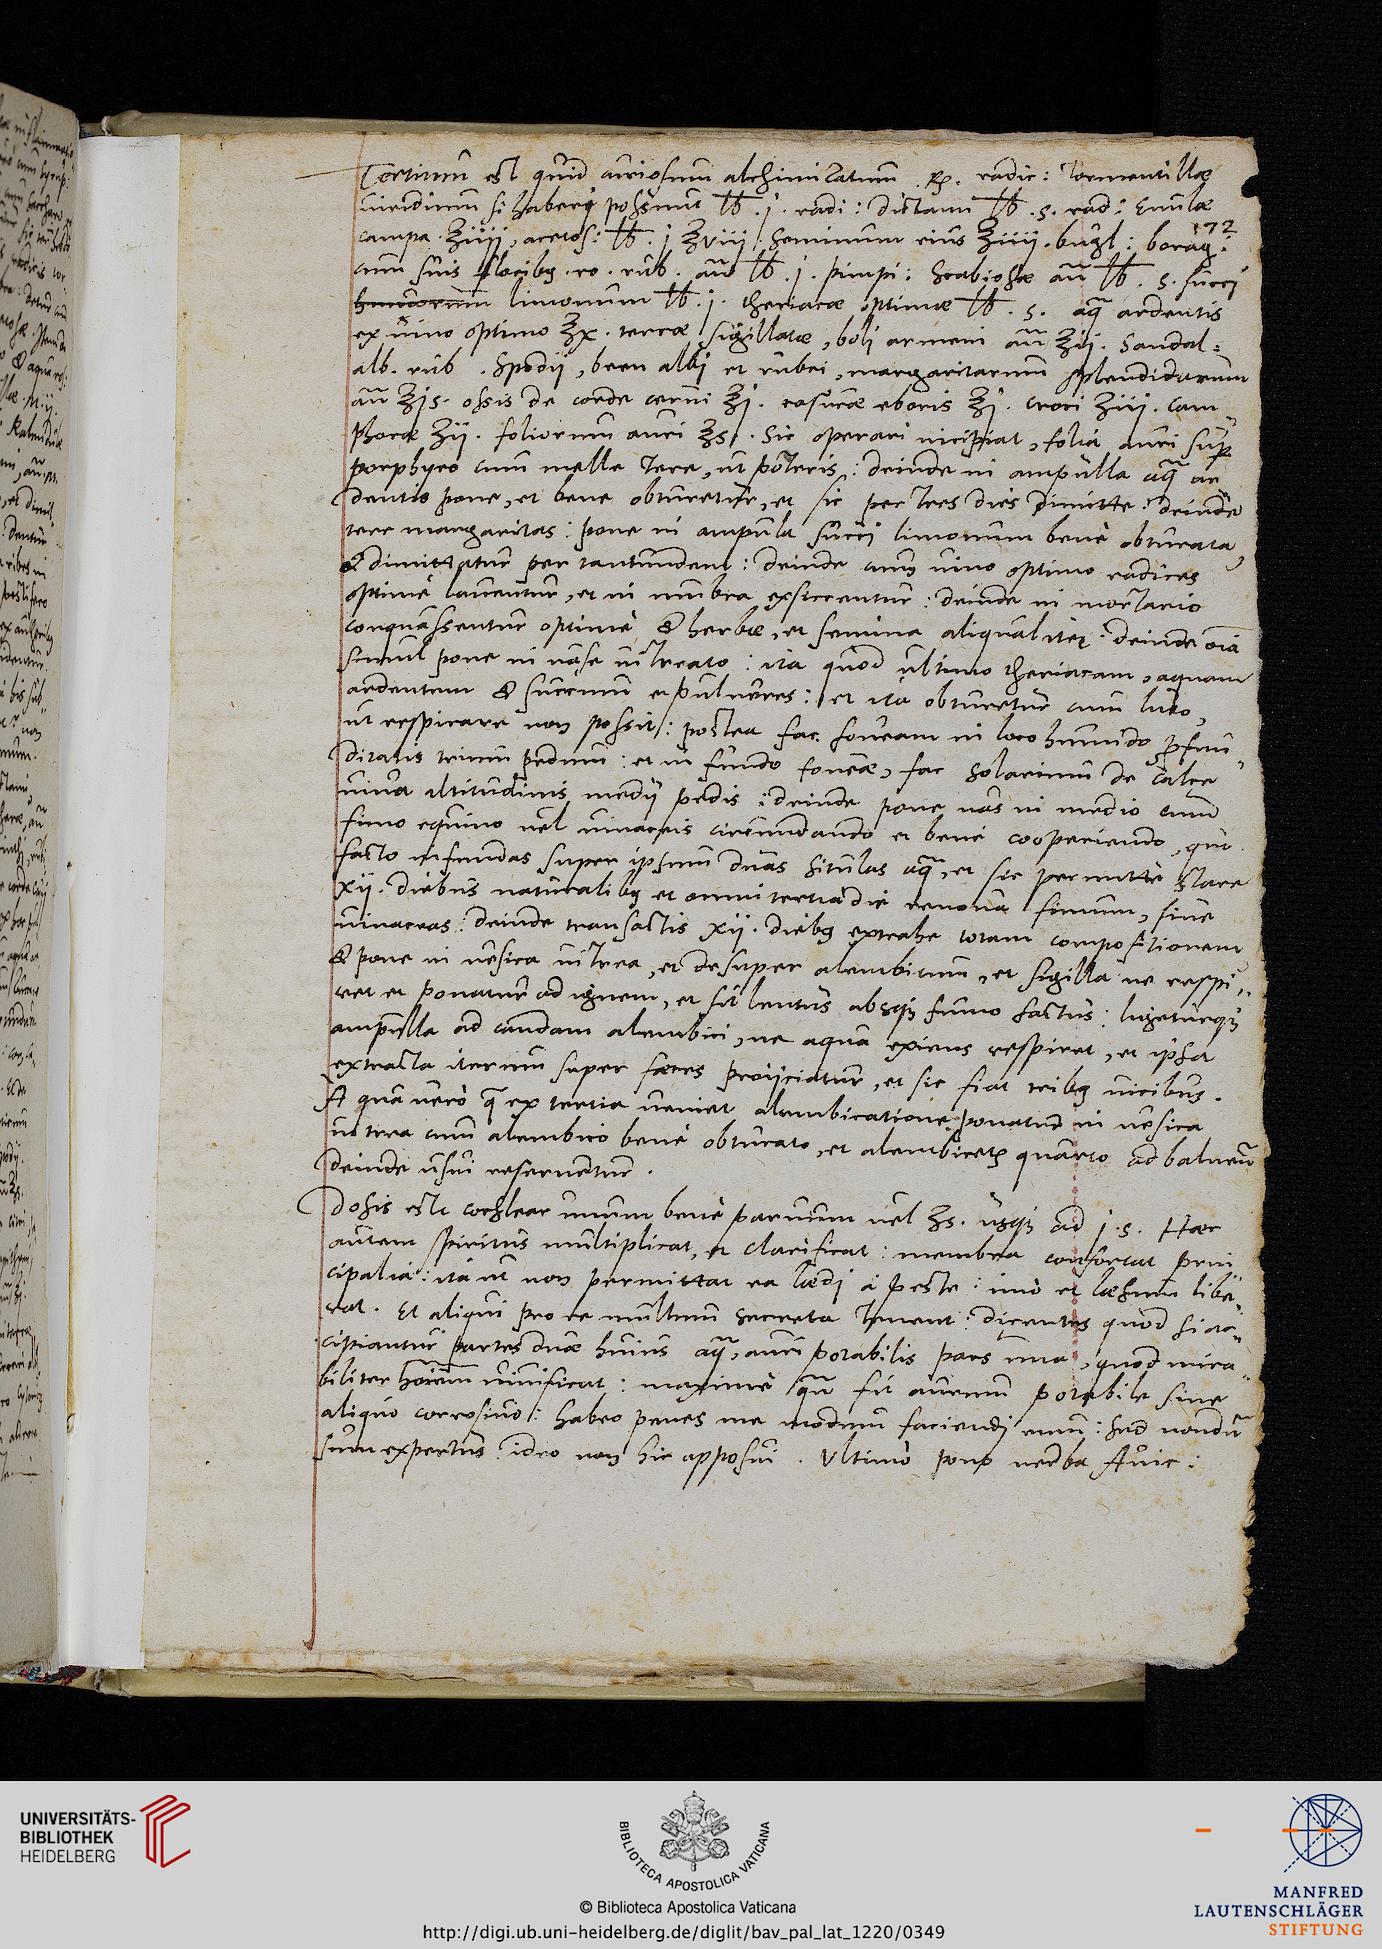 Tertium est quid curiosum alchimicatum. ℞. radic: Tormentillæ
uiridium si haberi possunt ℔ .j. radi: dictami ℔ .s. rad: Enulæ
172
campa. ℥iiij, acetos: ℔ .j ℥viij. Seminum eius ℥iiij. bugl: borag:
cum suis floribꝫ. ro. rub. añ ℔ .j. pimpi: Scabiosæ añ ℔ .s. succi
limonum ℔ .j. theriacæ optimæ ℔ .s. aqꝫ ardentis
ex uino optimo ℥x. terræ sigillatæ, boli armeni añ ℥ij. Sandal:
alb. rub. Spodij, been albi et rubei, margaritarum splendidarum
añ ℥js. ossis de corde cerui ℥j. rasuræ eboris ℥j. croci ℥iij. cam„
phoræ ℥ij. foliorum auri ℥s. Sic operari incipiat, folia auri sup
porphyro cum melle tere, ut poteris: deinde in ampulla aqꝫ ar
dentis pone, et bene obturetur, et sic per tres dies dimitte: deinde
tere margaritas: pone in ampula succi limonum benè obturata,
& dimittatur per tantundem: deinde cum uino optimo radices
optimè lauentur, et in umbra exsiccentur: deinde in mortario
conquassentur optimè & herbæ, et semina aliqualiter: deinde oĩa
simul pone in uase uitreato: ita quod ultimo theriacam, aquam
ardentem & succum et pulueres: et ita obturetur cum luto,
ut respirare non possit: postea fac foueam in loco humido ꝓfun„
ditatis trium pedum: et in fundo foueæ, fac solarium de calce
uiua altitudinis medij pedis: deinde pone uas in medio cum
fimo equino uel uinaceis circundando et benè cooperiendo, quo
facto infundas super ipsum duas situlas aqꝫ, et sic permitte stare
xij. diebus naturalibꝫ et omni tertia die renoua fimum, siue
uinaceas: deinde transactis xij. diebꝫ extrahe totam compositionem
& pone in uesica uitrea, et desuper alembicum, et sigilla ne respi„
ret et ponatur ad ignem, et sit lentus absqꝫ fumo factus: ligeturqꝫ
ampulla ad caudam alembici, ne aqua exiens respiret, et ipsa
extracta iterum super fæces proijciatur, et sic fiat tribꝫ uicibus.
Aqua uerò quæ ex tertia ueniet alembicatione ponatur in uesica
uitrea cum alembico benè obturato, et alembicetꝛ quarto ad balneũ
deinde usui reseruetur.
Dosis est cochlear unum benè paruum uel ℥s. usqꝫ ad j.s. Hæc
autem spiritus multiplicat, et clarificat: membra confortat prin
cipalia: ita ut non permittat ea lædi à peste: imò et læsum libe„
rat. Et aliqui pro re multum secreta tenent: dicentes quod si ac„
cipiantur partes duæ huius aqꝫ, auri potabilis pars una, quod mira„
biliter hoĩem uiuificat: maximè qñ fit aurum potabile sine
aliquo corrosiuo: habeo penes me modum faciendi eum: sed nondũ
sum expertus: ideo non hic apposui. Vltimò pono uerba Auic:
UNIVERSITÄTS-
BIBLIOTHEK
HEIDELBERG
BIBLIOTECA APOSTOLICA VATICANA
© Biblioteca Apostolica Vaticana
http://digi.ub.uni-heidelberg.de/diglit/bav_pal_lat_1220/0349
MANFRED
LAUTENSCHLÄGER
STIFTUNG